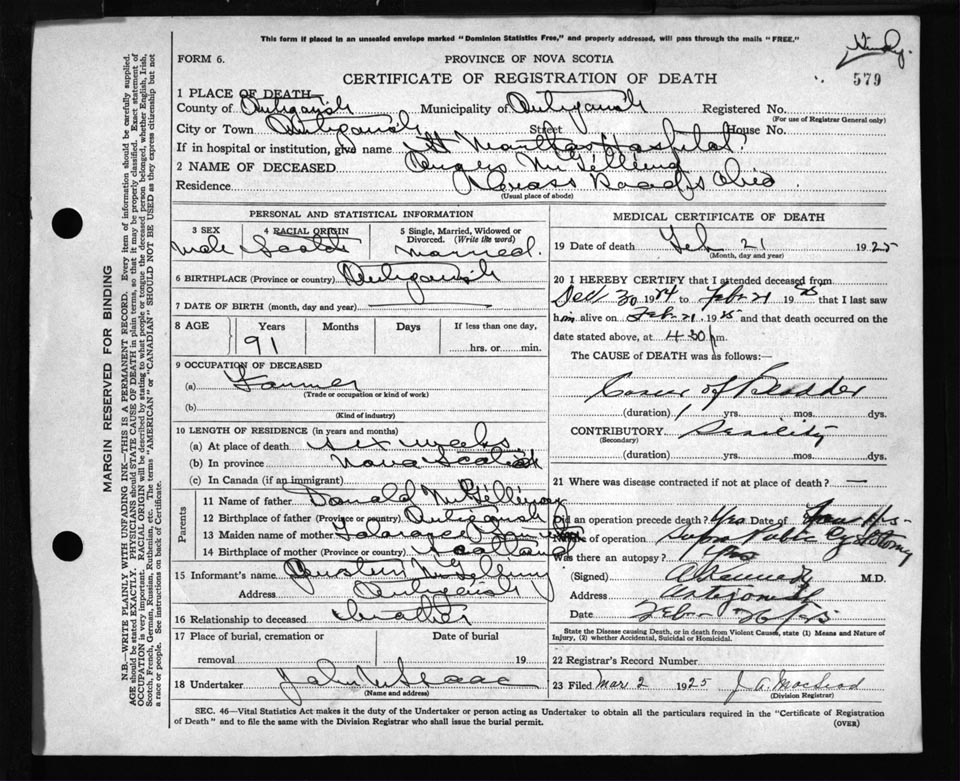 This form if placed in an unsealed envelope marked "Dominion Statistics Free," and properly addressed, will pass through the mails "FREE."
FORM 6.
PROVINCE OF NOVA SCOTIA
CERTIFICATE OF REGISTRATION OF DEATH
579
1 PLACE OF DEATH
County of Antigonish Municipality of Antigonish Registered No.
(For use of Registrar General only)
City or Town Antigonish Street House No.
If in hospital or institution, give name St Marthas Hospital
2 NAME OF DECEASED Angus McGillivray
Residence
(Usual place of abode)
PERSONAL AND STATISTICAL INFORMATION
3 SEX 4 RACIAL ORIGIN 5 Single, Married, Widowed or Divorced. (Write the word)
male Scotch married.
6 BIRTHPLACE (Province or country) Antigonish
7 DATE OF BIRTH (month, day and year)
8 AGE Years Months Days If less than one day,
91 hrs. or min.
9 OCCUPATION OF DECEASED
(a) Farmer
(Trade or occupation or kind of work)
(b)
(Kind of industry)
10 LENGTH OF RESIDENCE (in years and months)
(a) At place of death six weeks
(b) In province Nova Scotia
(c) In Canada (if an immigrant)
Parents
11 Name of father Donald McGillivray
12 Birthplace of father (Province or country) Antigonish
13 Maiden name of mother
14 Birthplace of mother (Province or country) Scotland
15 Informant's name
Address Antigonish
16 Relationship to deceased brother
17 Place of burial, cremation or Date of burial
removal 19
18 Undertaker John McIsaac
(Name and address)
MEDICAL CERTIFICATE OF DEATH
19 Date of death Feb 21 1925
(Month, day and year)
20 I HEREBY CERTIFY that I attended deceased from
Dec 30 1924 to Feb. 21 1925 that I last saw
him alive on Feb 21 1925 and that death occurred on
date stated above, at 4.30 p m.
The CAUSE of DEATH was as follows:—
Cancer of Bladder
(duration) 1 yrs. mos. dys.
CONTRIBUTORY Senility
(Secondary)
(duration) yrs. mos. dys.
21 Where was disease contracted if not at place of death? —
Did an operation precede death? Yes Date of
Nature of operation Supra Pubic Cystotomy
Was there an autopsy?
(Signed) M.D.
Address Antigonish
Date
State the Disease causing Death, or in death from Violent Causes, state (1) Means and Nature of
Injury, (2) whether Accidental, Suicidal or Homicidal.
22 Registrar's Record Number
23 Filed Mar 2 1925 J. A. MacLeod
(Division Registrar)
SEC. 46—Vital Statistics Act makes it the duty of the Undertaker or person acting as Undertaker to obtain all the particulars required in the "Certificate of Registration
of Death" and to file the same with the Division Registrar who shall issue the burial permit.
(OVER)
MARGIN RESERVED FOR BINDING
N.B.—WRITE PLAINLY WITH UNFADING INK—THIS IS A PERMANENT RECORD. Every item of information should be carefully supplied.
AGE should be stated EXACTLY. PHYSICIANS should STATE CAUSE OF DEATH in plain terms, so that it may be properly classified. Exact statement of
OCCUPATION is very important. RACIAL ORIGIN will be described by stating to what people or tongue the deceased person belonged, whether English, Irish,
Scotch, French, German, Russian, Ruthenian, etc. The terms "AMERICAN" or "CANADIAN" SHOULD NOT BE USED as they express citizenship but not
a race or people. See instructions on back of Certificate.